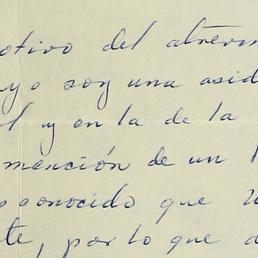 otivo del atrevim
yo soy una asid
l y en la de la
mención de un
conocido que
te, por lo que d